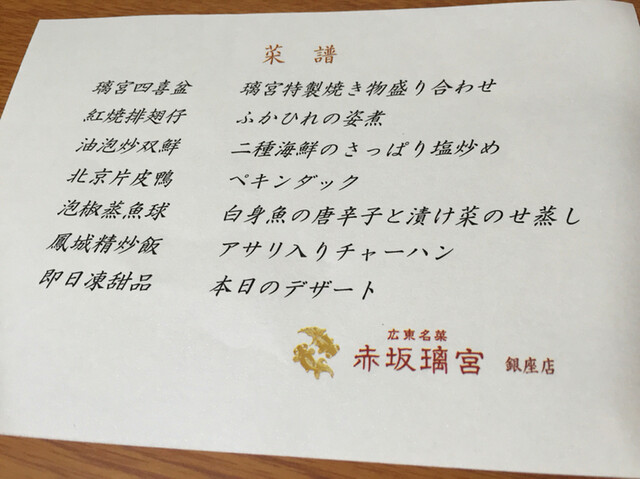 菜譜
璃宮四喜盆 璃宮特製焼き物盛り合わせ
紅焼排翅仔 ふかひれの姿煮
油泡炒双鮮 二種海鮮のさっぱり塩炒め
北京片皮鴨 ペキンダック
泡椒蒸魚球 白身魚の唐辛子と漬け菜のせ蒸し
鳳城精炒飯 アサリ入りチャーハン
即日凍甜品 本日のデザート
広東名菜
赤坂璃宮 銀座店